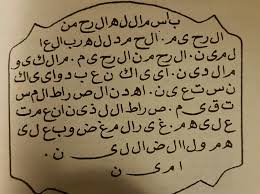 ب ا س م ا ل ل ه ا ل ر ح م ن
ا ل ر ح ي م. ا ل ح م د ل ل ه ر ب ا ل ع ا
ل م ي ن. ا ل ر ح م ن ا ل ر ح ي م. م ا ل ك ي و
م ا ل د ي ن. ا ي ا ك ن ع ب د و ا ي ا ك
ن س ت ع ي ن. ا ه د ن ا ل ص ر ا ط ا ل م س
ت ق ي م. ص ر ا ط ا ل ذ ي ن ا ن ع م ت
ع ل ي ه م. غ ي ر ا ل م غ ض و ب ع ل ي
ه م و ل ا ا ل ض ا ل ل ي ن.
ا م ي ن